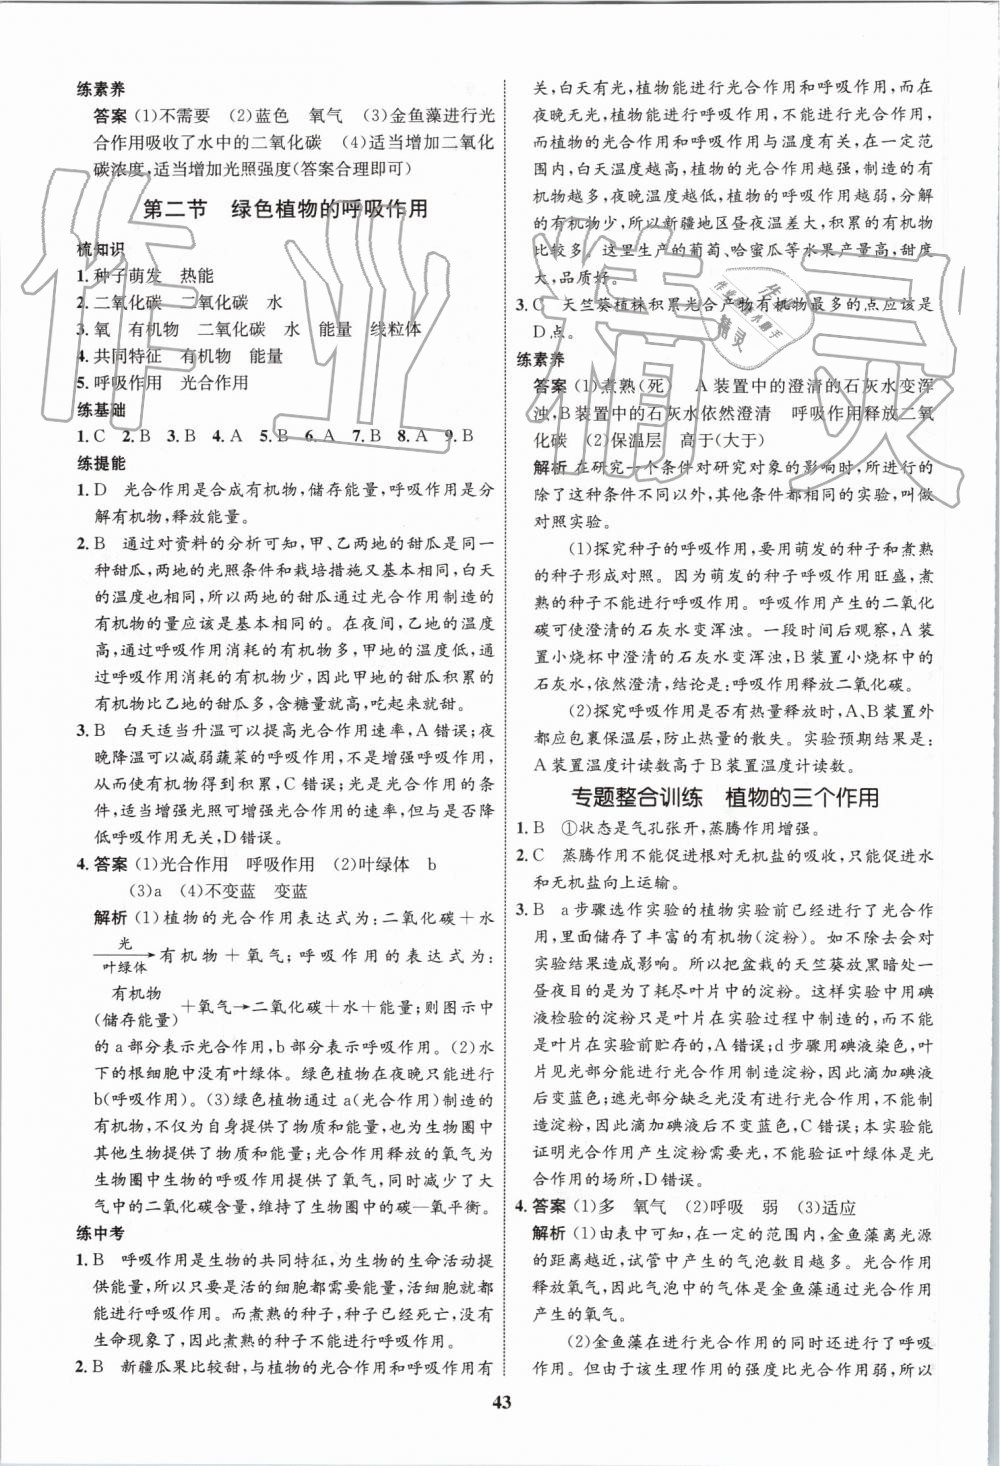 练素养
答案 (1)不需要 (2)蓝色 氧气 (3)金鱼藻进行光
合作用吸收了水中的二氧化碳 (4)适当增加二氧化
碳浓度,适当增加光照强度(答案合理即可)
第二节 绿色植物的呼吸作用
梳知识
1.种子萌发 热能
2.二氧化碳 二氧化碳 水
3.氧 有机物 二氧化碳 水 能量 线粒体
4.共同特征 有机物 能量
5.呼吸作用 光合作用
练基础
1.C 2.B 3.B 4.A 5.B 6.A 7.B 8.A 9.B
练提能
1.D 光合作用是合成有机物,储存能量,呼吸作用是分
解有机物,释放能量。
2.B 通过对资料的分析可知,甲、乙两地的甜瓜是同一
种甜瓜,两地的光照条件和栽培措施又基本相同,白天
的温度也相同,所以两地的甜瓜通过光合作用制造的
有机物的量应该是基本相同的。在夜间,乙地的温度
高,通过呼吸作用消耗的有机物多,甲地的温度低,通
过呼吸作用消耗的有机物少,因此甲地的甜瓜积累的
有机物比乙地的甜瓜多,含糖量就高,吃起来就甜。
3.B 白天适当升温可以提高光合作用速率,A错误;夜
晚降温可以减弱蔬菜的呼吸作用,减少有机物的消耗,
从而使有机物得到积累,C错误;根据光合作用的条
件,适当增强光照可增强光合作用的速率,但与是否降
低呼吸作用无关,D错误。
4.答案 (1)光合作用 呼吸作用 (2)叶绿体 b
(3)a (4)不变蓝 变蓝
解析 (1)植物的光合作用表达式为:二氧化碳+水
光
叶绿体 有机物+氧气;呼吸作用的表达式为:
有机物
(储存能量)+氧气→二氧化碳+水+能量;则图示中
的a部分表示光合作用,b部分表示呼吸作用。(2)水
下的根细胞中没有叶绿体。绿色植物在夜晚只能进行
b(呼吸作用)。(3)绿色植物通过a(光合作用)制造的
有机物,不仅为自身提供了物质和能量,也为生物圈中
其他生物提供了物质和能量;光合作用释放的氧气为
生物圈中生物的呼吸作用提供了氧气,同时减少了大
气中的二氧化碳含量,维持了生物圈中的碳—氧平衡。
练中考
1.B 呼吸作用是生物的共同特征,为生物的生命活动提
供能量,所以只要是活的细胞都需要能量,活细胞就都
能进行呼吸作用。而煮熟的种子,种子已经死亡,没有
生命现象了,因此煮熟的种子不能进行呼吸作用。
2.B 新疆瓜果比较甜,与植物的光合作用和呼吸作用有
关,白天有光,植物能进行光合作用和呼吸作用,而在
夜晚无光,植物能进行呼吸作用,不能进行光合作用,
而植物的光合作用和呼吸作用与温度有关,在一定范
围内,白天温度越高,植物的光合作用越强,制造的有
机物越多,夜晚温度越低,植物的呼吸作用越弱,消耗
的有机物少,所以新疆地区昼夜温差大,积累的有机物
比较多。这里生产的葡萄、哈蜜瓜等水果产量高,甜度
大,品质好。
3.C 天竺葵植株积累光合产物有机物最多的点应该是
D点。
练素养
答案 (1)煮熟(死) A装置中的澄清的石灰水变浑
浊,B装置中的石灰水依然澄清 呼吸作用释放二氧
化碳 (2)保温层 高于(大于)
解析 在研究一个条件对研究对象的影响时,所进行的
除了这种条件不同以外,其他条件都相同的实验,叫做
对照实验。
(1)探究种子的呼吸作用,要用萌发的种子和煮熟
的种子形成对照。因为萌发的种子呼吸作用旺盛,煮
熟的种子不能进行呼吸作用。呼吸作用产生的二氧化
碳可使澄清的石灰水变浑浊。一段时间后观察,A装
置小烧杯中澄清的石灰水变浑浊,B装置小烧杯中的
石灰水,依然澄清,结论是:呼吸作用释放二氧化碳。
(2)探究呼吸作用是否有热量释放时,A、B装置外
都应包裹保温层,防止热量的散失。实验预期结果是:
A装置温度计读数高于B装置温度计读数。
专题整合训练 植物的三个作用
1.B ①状态是气孔张开,蒸腾作用增强。
2.C 蒸腾作用不能促进根对无机盐的吸收,只能促进水
和无机盐向上运输。
3.B a步骤选作实验的植物实验前已经进行了光合作
用,里面储存了丰富的有机物(淀粉)。如不除去会对
实验结果造成影响。所以把盆栽的天竺葵放黑暗处一
昼夜目的是为了耗尽叶片中的淀粉。这样实验中用碘
液检验的淀粉只是叶片在实验过程中制造的,而不能
是叶片在实验前贮存的,A错误;d步骤用碘液染色,叶
片见光部分能进行光合作用制造淀粉,因此滴加碘液
后变蓝色;遮光部分缺乏光没有进行光合作用,不能制
造淀粉,因此滴加碘液后不变蓝色,C错误;本实验能
证明光合作用产生淀粉需要光,不能验证叶绿体是光
合作用的场所,D错误。
4.答案 (1)多 氧气 (2)呼吸 弱 (3)适应
解析 (1)由表中可知,在一定的范围内,金鱼藻离光源
的距离越近,试管中产生的气泡次数越多。光合作用
释放氧气,因此气泡中的气体是金鱼藻通过光合作用
产生的氧气。
(2)金鱼藻在进行光合作用的同时还进行了呼吸
作用。但由于该生理作用的强度比光合作用弱,所以
43
作业精灵